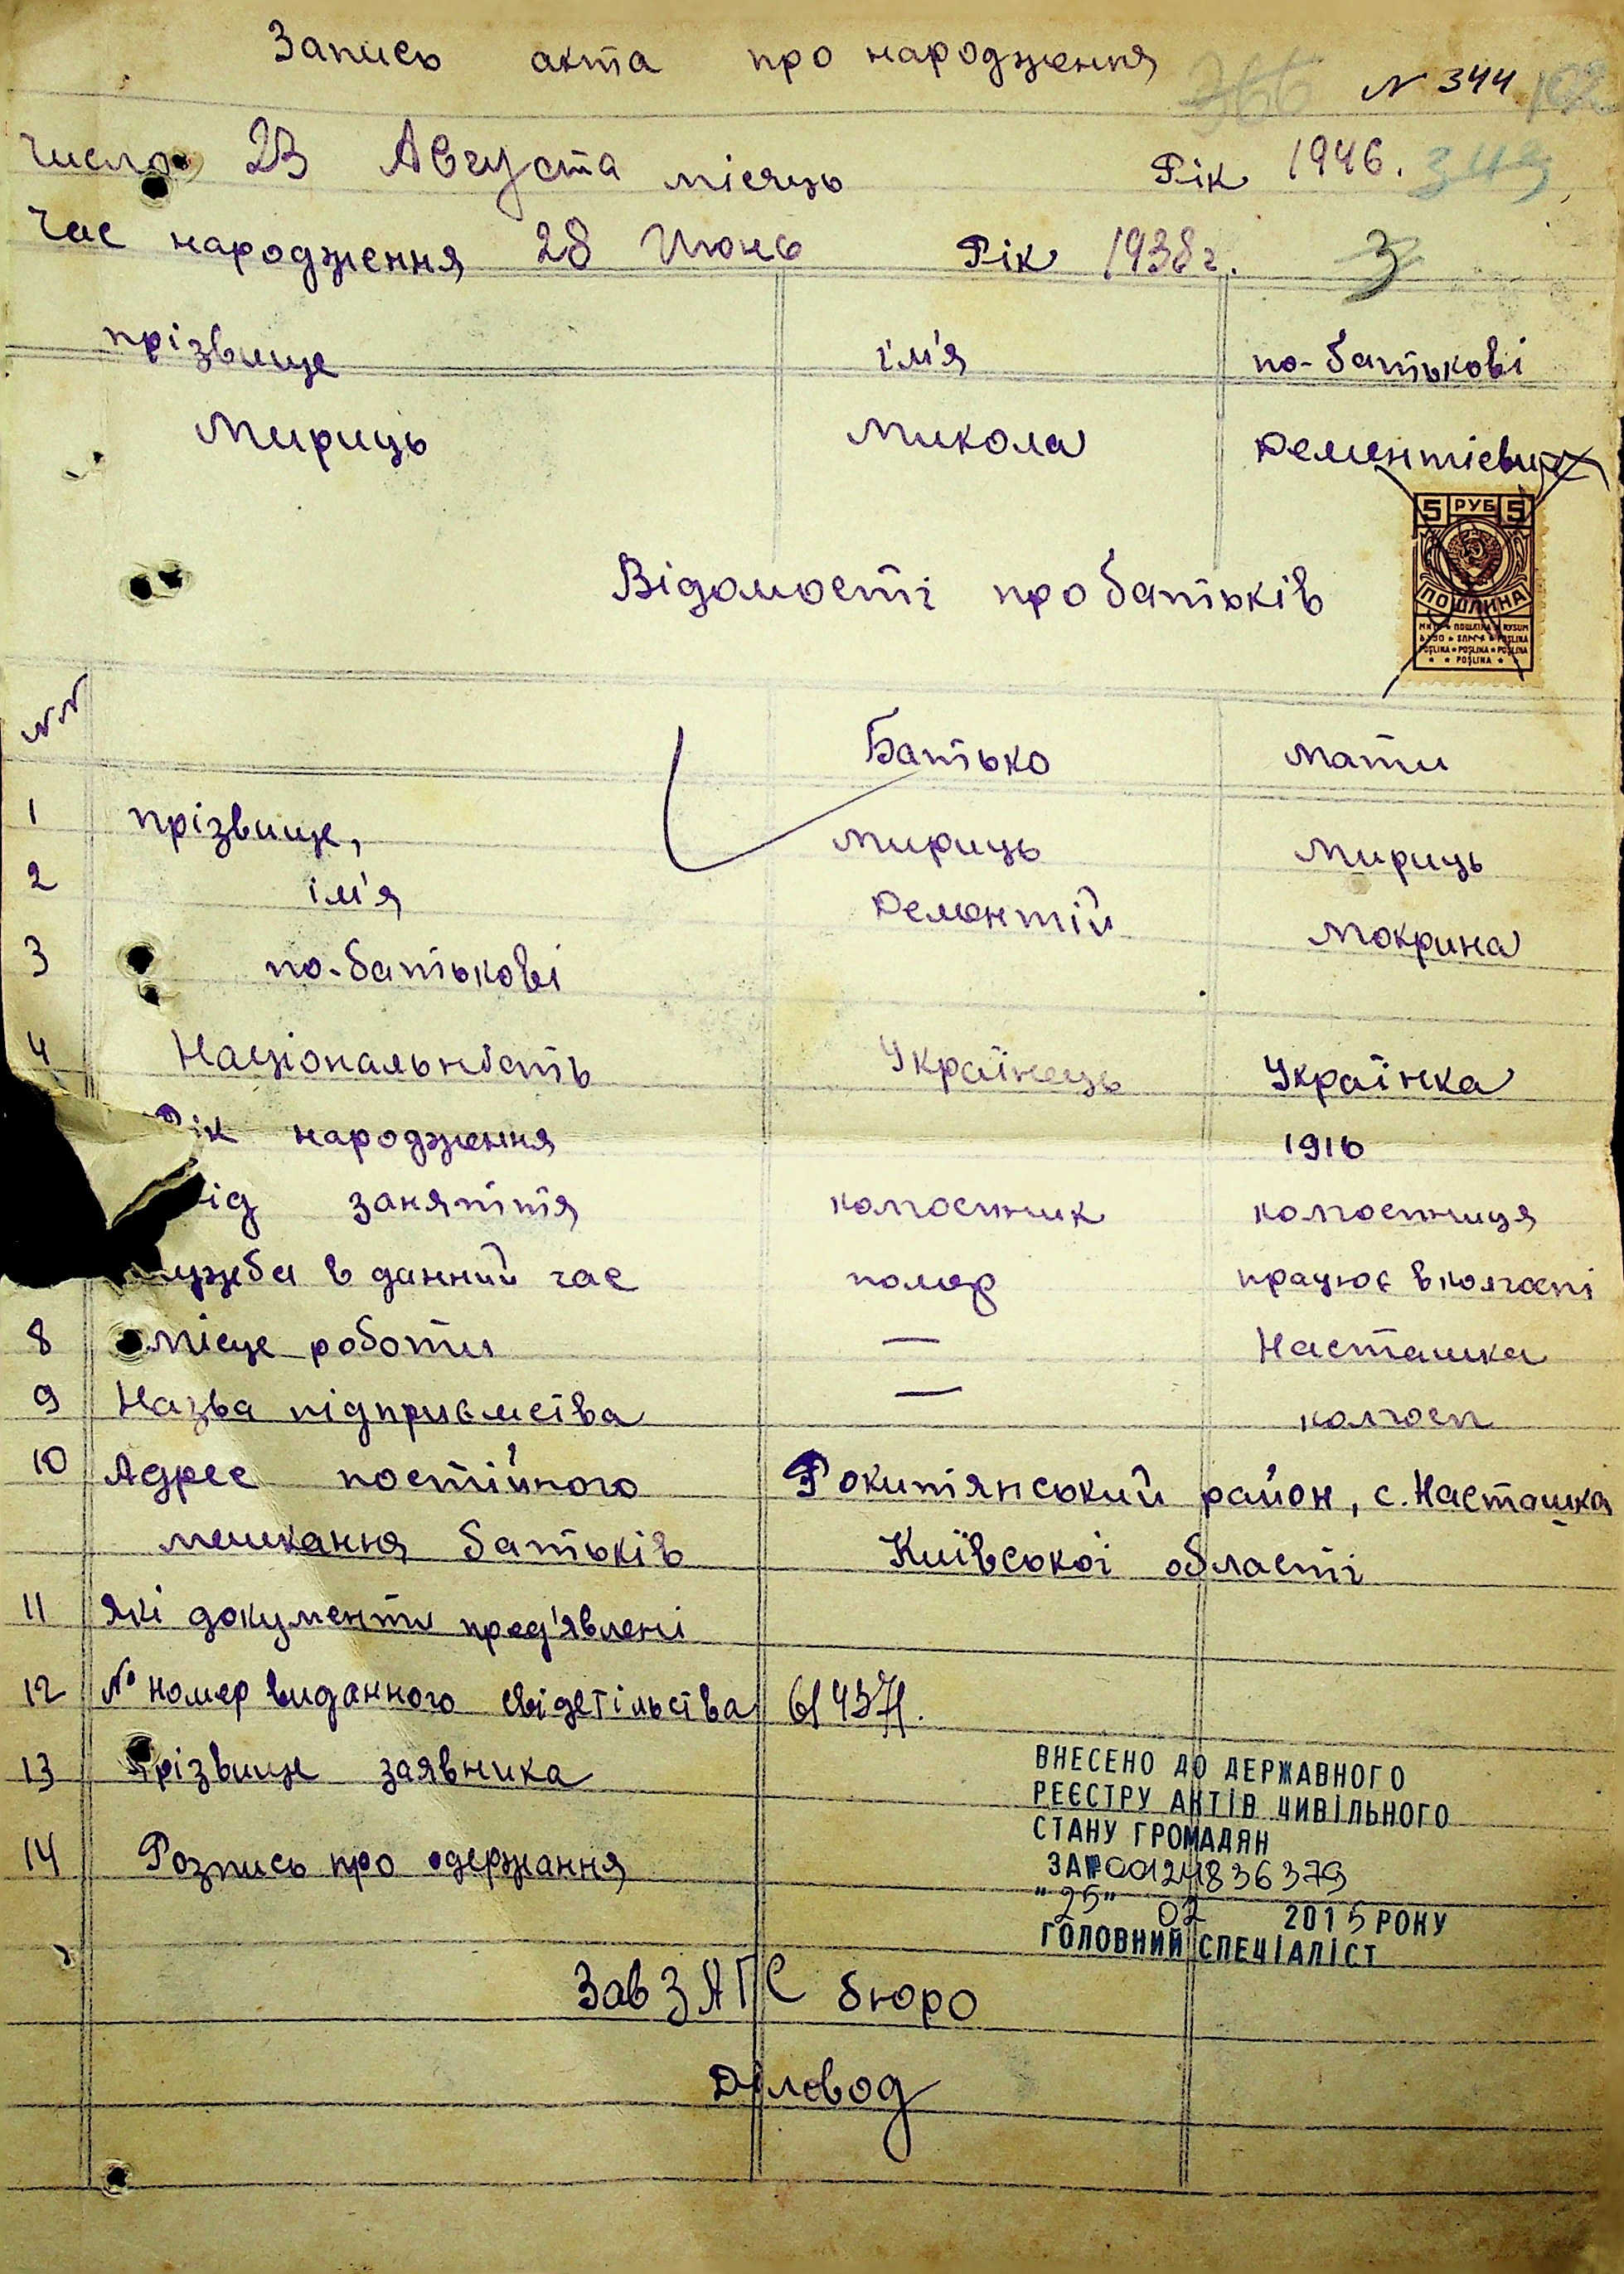 Запись акта про народження
N 344
366
Число 23 Августа місяць Рік 1946. 343
Час народження 28 Июнь Рік 1938 г. 3
прізвище ім'я по-батькові
Мириць Микола Дементієвич
5 РУБ 5
ПОШЛИНА
Відомості про батьків
NN Батько Мати
1 прізвище, Мириць Мириць
2 ім'я Дементій Мокрина
3 по-батькові
4 Національность Українець Українка
Рік народження 1910
ід заняття колгоспник колгоспниця
лужба в данний час помер працює в колгоспі
8 місце роботи — Насташка
9 Назва підприємства — колгосп
10 Адрес постійного Рокитянський район, с. Насташка
мешкання батьків Київської області
11 які документи пред'явлені
12 № номер виданного свідетільства 614371.
13 Прізвище заявника
14 Розпись про одержання
ВНЕСЕНО ДО ДЕРЖАВНОГО
РЕЄСТРУ АКТІВ ЦИВІЛЬНОГО
СТАНУ ГРОМАДЯН
ЗА №00124836379
"25" 02 2015 РОКУ
ГОЛОВНИЙ СПЕЦІАЛІСТ
Зав ЗАГС бюро
Діловод